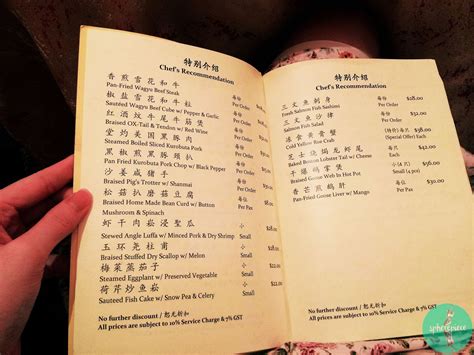 特别介绍
Chef's Recommendation
香煎雪花和牛 每份
Pan-Fried Wagyu Beef Steak Per Order
椒盐雪花和牛 每份
Sauteed Wagyu Beef Cube w/ Pepper & Garlic Per Order
红酒炆牛尾牛筋煲
Braised OX-Tail & Tendon w/ Red Wine
堂灼美国黑豚肉
Steamed Boiled Sliced Kurobuta Pork
黑椒煎黑豚扒
Pan Fried Kurobuta Pork Chop w/ Black Pepper
沙姜咸猪手
Braised Pig's Trotter w/ Shanmai
松菇扒磨菇豆腐
Braised Home Made Bean Curd w/ Button
Mushroom & Spinach
虾干肉崧浸圣瓜
Stewed Angle Luffa w/ Minced Pork & Dry Shrimp Small
玉环尧柱甫
Braised Stuffed Dry Scallop w/ Melon
梅菜蒸茄子 小
Steamed Eggplant w/ Preserved Vegetable Small
荷芹炒鱼崧 小
Sauteed Fish Cake w/ Snow Pea & Celery Small $22.00
No further discount / 恕无折扣
All prices are subject to 10% Service Charge & 7% GST
特别介绍
Chef's Recommendation
三文鱼刺身 每份 $28.00
Fresh Salmon Fish Sashimi Per Order
三文鱼沙律 每份 $18.00
Salmon Fish Salad Per Order
冻食黄膏蟹 (特价) 每只
Cold Yellow Roe Crab (Special Offer) Each
芝士焗龙虾尾 每件 $28.00
Baked Boston Lobster Tail w/ Cheese Each
干爆鹅掌煲 小 (4只) $28.00
Braised Goose Web In Hot Pot Small (4 pcs)
香芒煎鹅肝 每位 $30.00
Pan-Fried Goose Liver w/ Mango Per Pax
No further discount / 恕无折扣
All prices are subject to 10% Service Charge & 7% GST